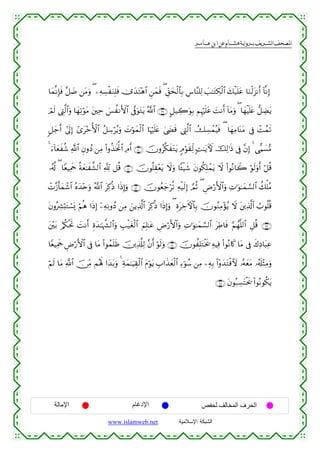 المصحف الشريف برواية هشام عن ابن عامر
إِنَّآ أَنزَلْنَا عَلَيْكَ ٱلْكِتَٰبَ لِلنَّاسِ بِٱلْحَقِّ ۖ فَمَنِ ٱهْتَدَىٰ فَلِنَفْسِهِۦ ۖ وَمَن ضَلَّ فَإِنَّمَا
يَضِلُّ عَلَيْهَا ۖ وَمَآ أَنتَ عَلَيْهِم بِوَكِيلٍ ۝ ٱللَّهُ يَتَوَفَّى ٱلْأَنفُسَ حِينَ مَوْتِهَا وَٱلَّتِى لَمْ
تَمُتْ فِى مَنَامِهَا ۖ فَيُمْسِكُ ٱلَّتِى قَضَىٰ عَلَيْهَا ٱلْمَوْتَ وَيُرْسِلُ ٱلْأُخْرَىٰٓ إِلَىٰٓ أَجَلٍ
مُّسَمًّى ۚ إِنَّ فِى ذَٰلِكَ لَءَايَٰتٍ لِّقَوْمٍ يَتَفَكَّرُونَ ۝ أَمِ ٱتَّخَذُوا۟ مِن دُونِ ٱللَّهِ شُفَعَآءَ ۚ
قُلْ أَوَلَوْ كَانُوا۟ لَا يَمْلِكُونَ شَيْـًٔا وَلَا يَعْقِلُونَ ۝ قُل لِّلَّهِ ٱلشَّفَٰعَةُ جَمِيعًا ۖ لَّهُۥ
مُلْكُ ٱلسَّمَٰوَٰتِ وَٱلْأَرْضِ ۖ ثُمَّ إِلَيْهِ تُرْجَعُونَ ۝ وَإِذَا ذُكِرَ ٱللَّهُ وَحْدَهُ ٱشْمَأَزَّتْ
قُلُوبُ ٱلَّذِينَ لَا يُؤْمِنُونَ بِٱلْأَخِرَةِ ۖ وَإِذَا ذُكِرَ ٱلَّذِينَ مِن دُونِهِۦٓ إِذَا هُمْ يَسْتَبْشِرُونَ
۝ قُلِ ٱللَّهُمَّ فَاطِرَ ٱلسَّمَٰوَٰتِ وَٱلْأَرْضِ عَٰلِمَ ٱلْغَيْبِ وَٱلشَّهَٰدَةِ أَنتَ تَحْكُمُ بَيْنَ
عِبَادِكَ فِى مَا كَانُوا۟ فِيهِ يَخْتَلِفُونَ ۝ وَلَوْ أَنَّ لِلَّذِينَ ظَلَمُوا۟ مَا فِى ٱلْأَرْضِ جَمِيعًا
وَمِثْلَهُۥ مَعَهُۥ لَٱفْتَدَوْا۟ بِهِۦ مِن سُوٓءِ ٱلْعَذَابِ يَوْمَ ٱلْقِيَٰمَةِ ۚ وَبَدَا لَهُم مِّنَ ٱللَّهِ مَا لَمْ
يَكُونُوا۟ يَحْتَسِبُونَ ۝
الحرف المخالف لحفص
الإدغام
الإمالة
الشبكة الإسلامية
www.islamweb.net